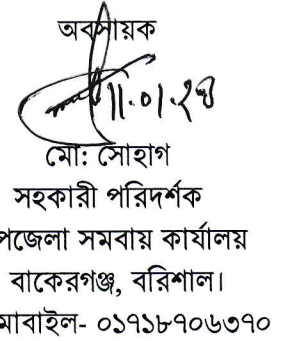 অবসায়ক
১১.০১.২৩
মো: সোহাগ
সহকারী পরিদর্শক
পজেলা সমবায় কার্যালয়
বাকেরগঞ্জ, বরিশাল।
মোবাইল- ০১৭১৮৭০৬৩৭০